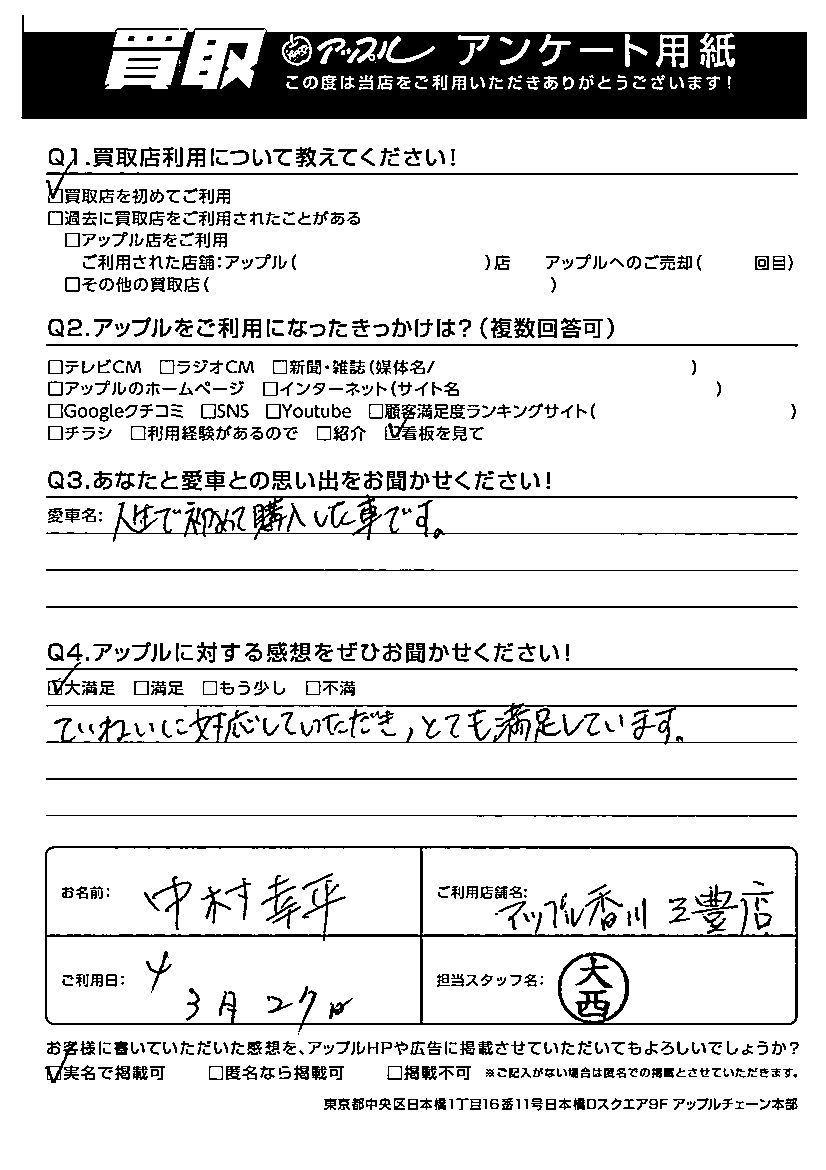 買取 アップル アンケート用紙
この度は当店をご利用いただきありがとうございます!
Q1.買取店利用について教えてください!
☑買取店を初めてご利用
□過去に買取店をご利用されたことがある
□アップル店をご利用
ご利用された店舗:アップル( )店 アップルへのご売却( 回目)
□その他の買取店( )
Q2.アップルをご利用になったきっかけは?(複数回答可)
□テレビCM □ラジオCM □新聞・雑誌(媒体名/ )
□アップルのホームページ □インターネット(サイト名 )
□Googleクチコミ □SNS □Youtube □顧客満足度ランキングサイト( )
□チラシ □利用経験があるので □紹介 ☑看板を見て
Q3.あなたと愛車との思い出をお聞かせください!
愛車名: 人生で初めて購入した車です。
Q4.アップルに対する感想をぜひお聞かせください!
☑大満足 □満足 □もう少し □不満
ていねいに対応していただき,とても満足しています。
お名前: 中村幸平
ご利用店舗名: アップル香川三豊店
ご利用日: 4 3月27日
担当スタッフ名: 大西
お客様に書いていただいた感想を、アップルHPや広告に掲載させていただいてもよろしいでしょうか?
☑実名で掲載可 □匿名なら掲載可 □掲載不可 ※ご記入がない場合は匿名での掲載とさせていただきます。
東京都中央区日本橋1丁目16番11号日本橋Dスクエア9F アップルチェーン本部